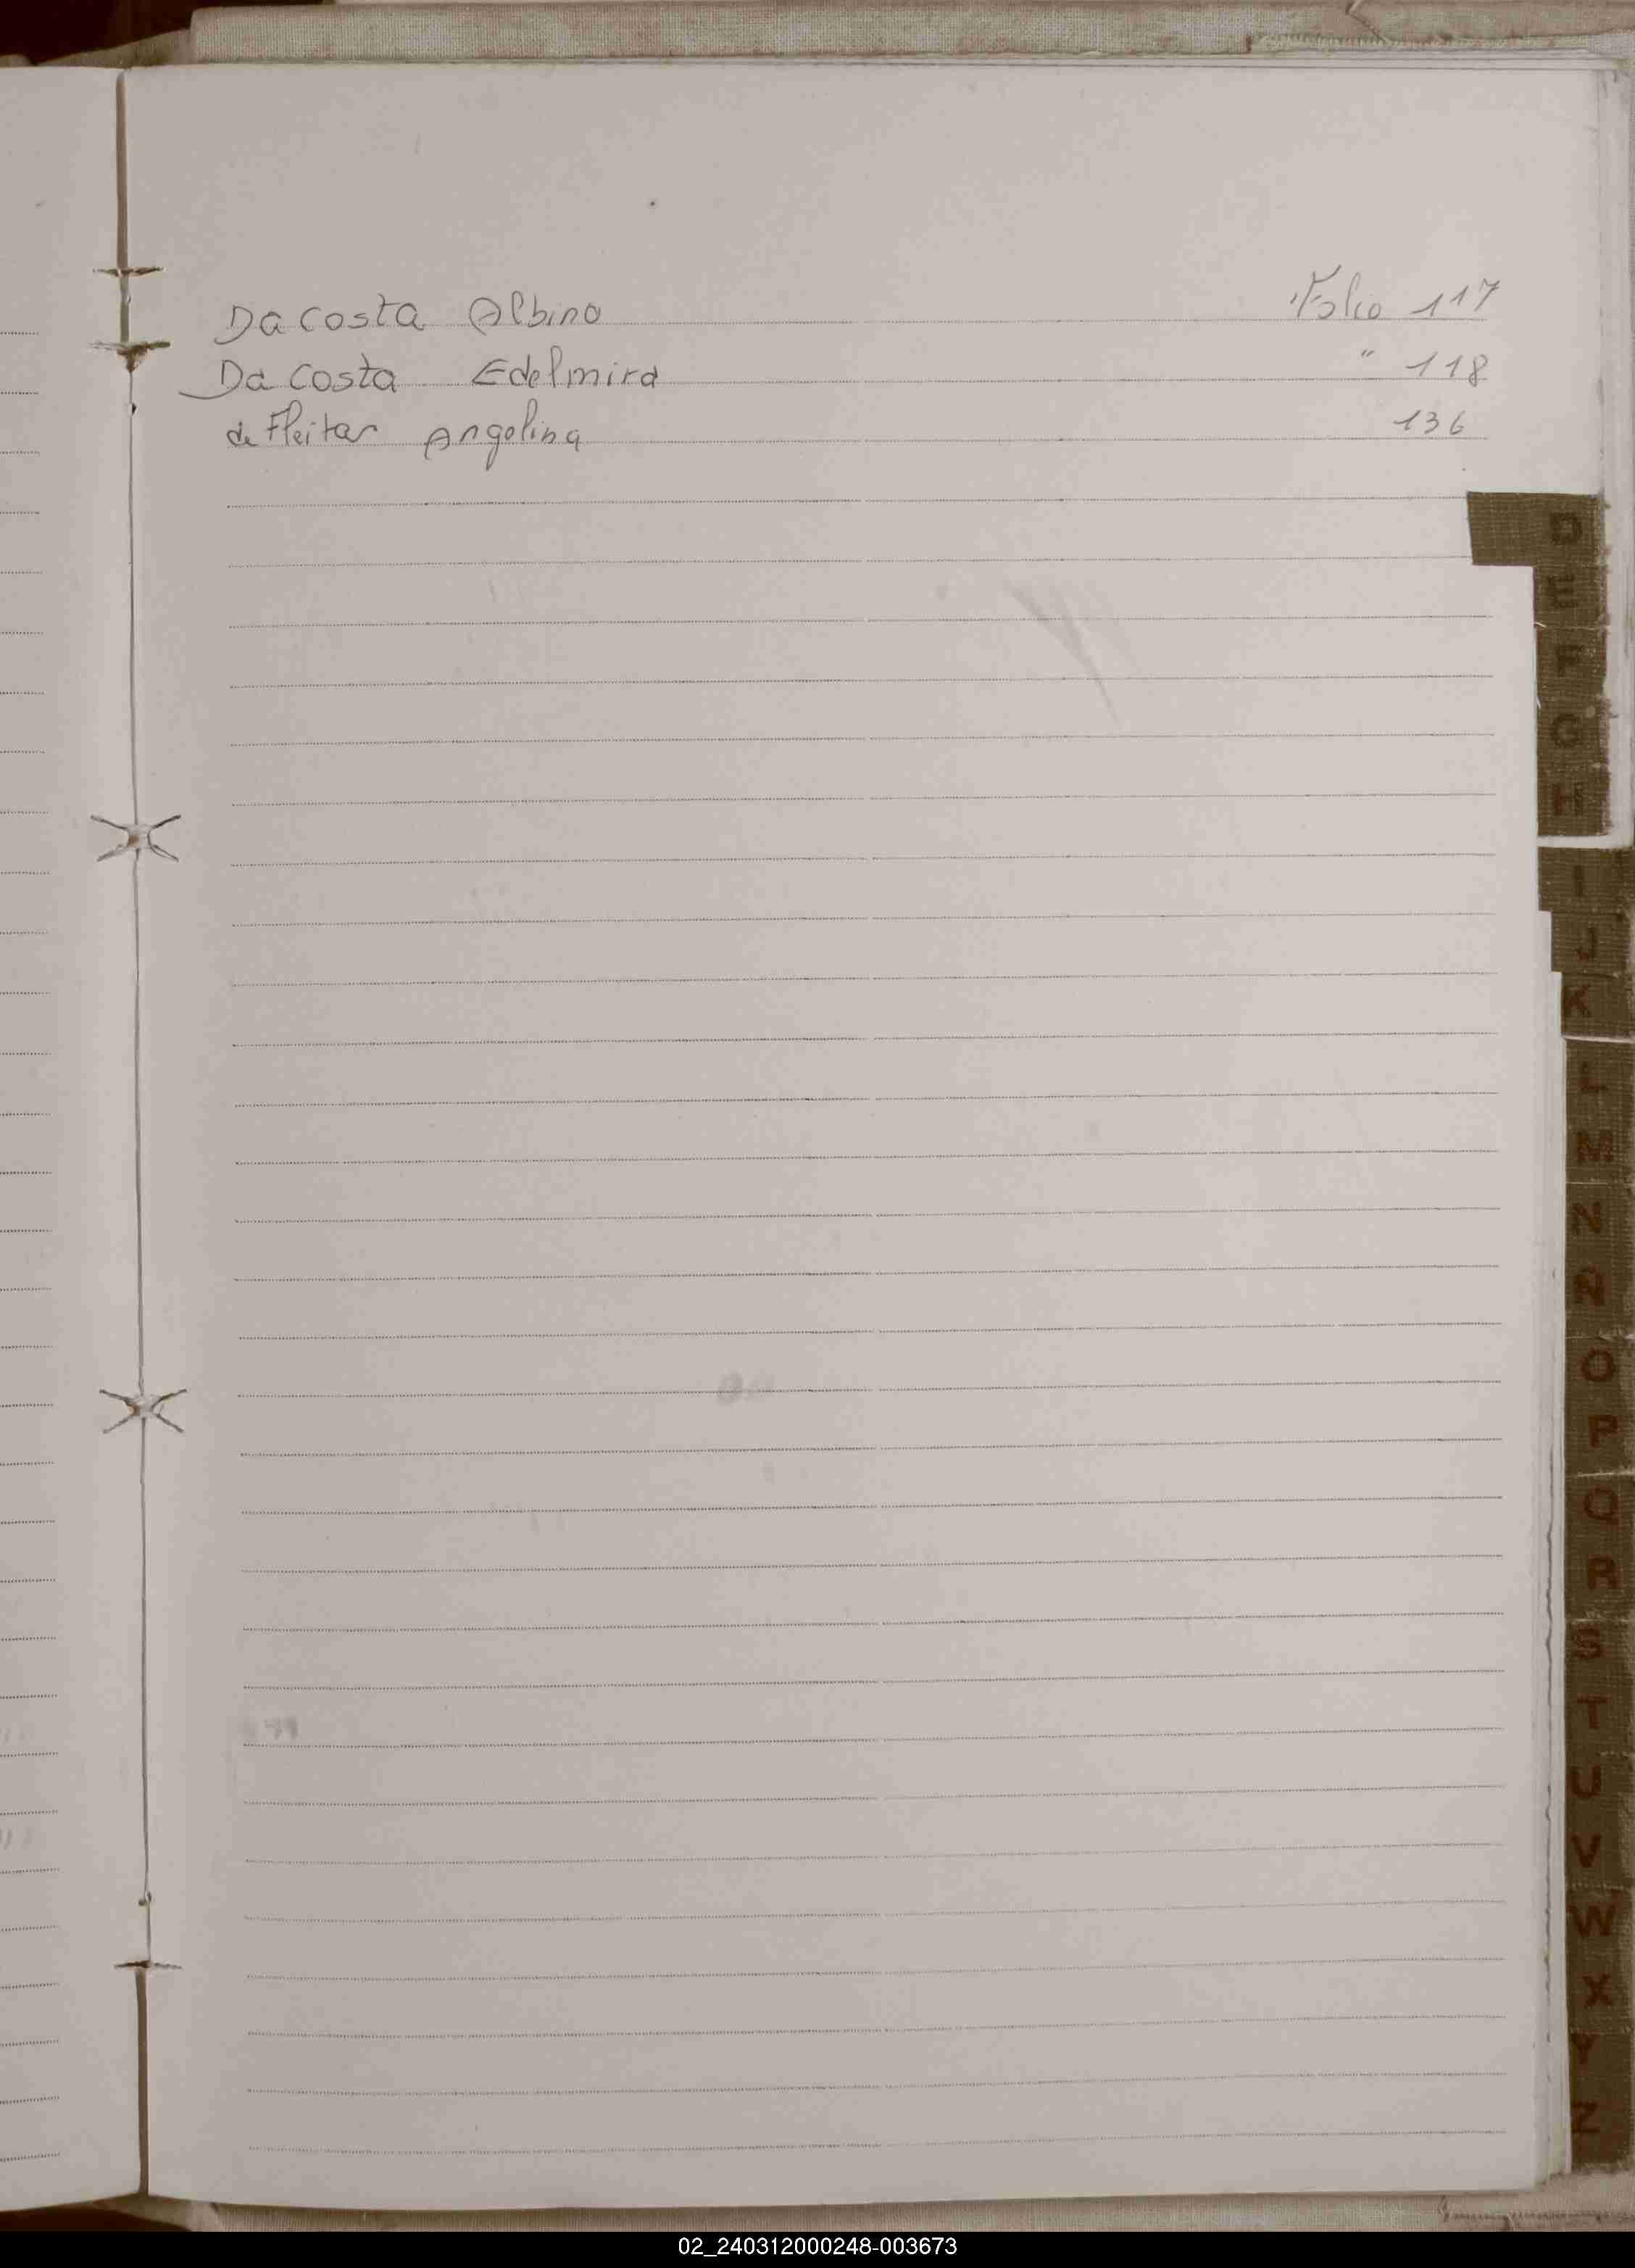 Da Costa Albino Folio 117
Da Costa Edelmira " 118
de Fleitas Angelina 136
D
E
F
G
H
I
J
K
L
M
N
Ñ
O
P
Q
R
S
T
U
V
W
X
Y
Z
02_240312000248-003673